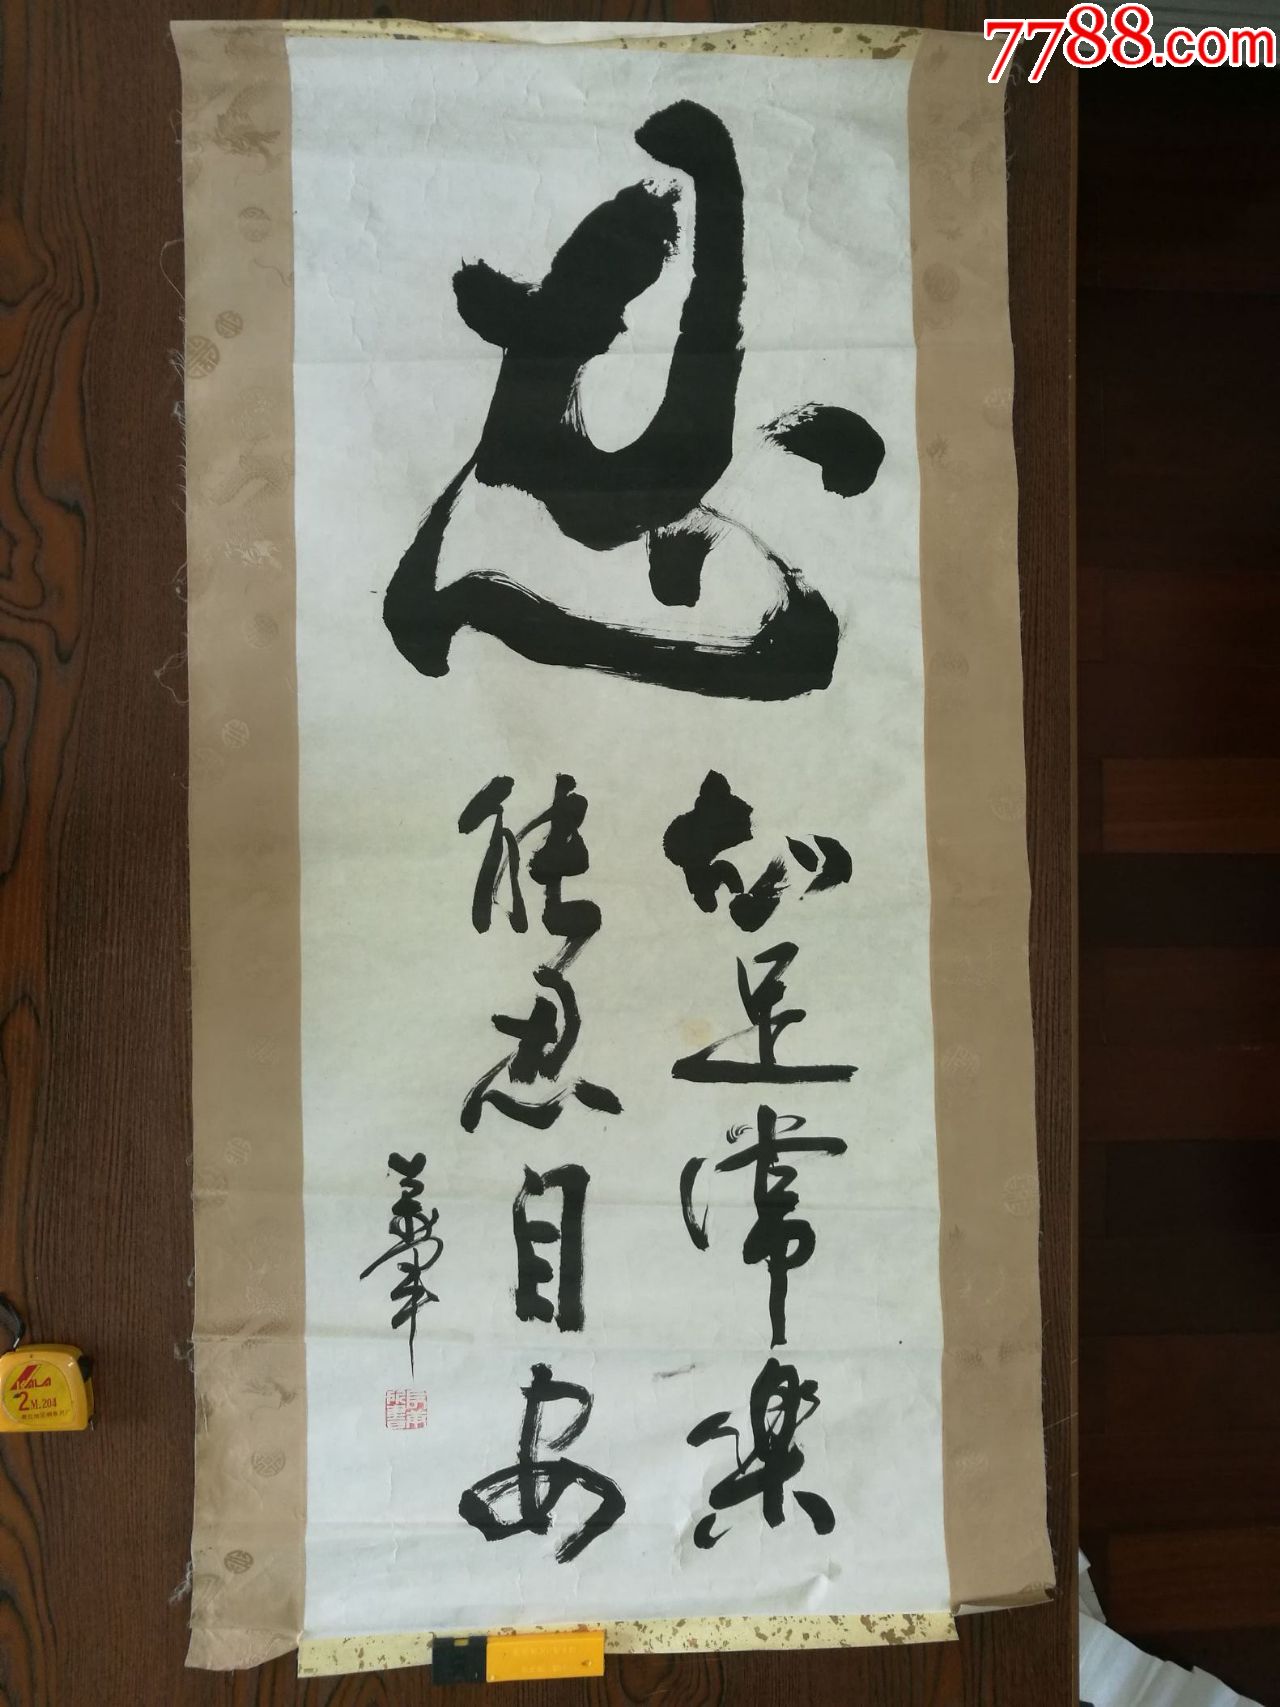 7788.com
忍
知足常樂
能忍自安
KALA
2M.204